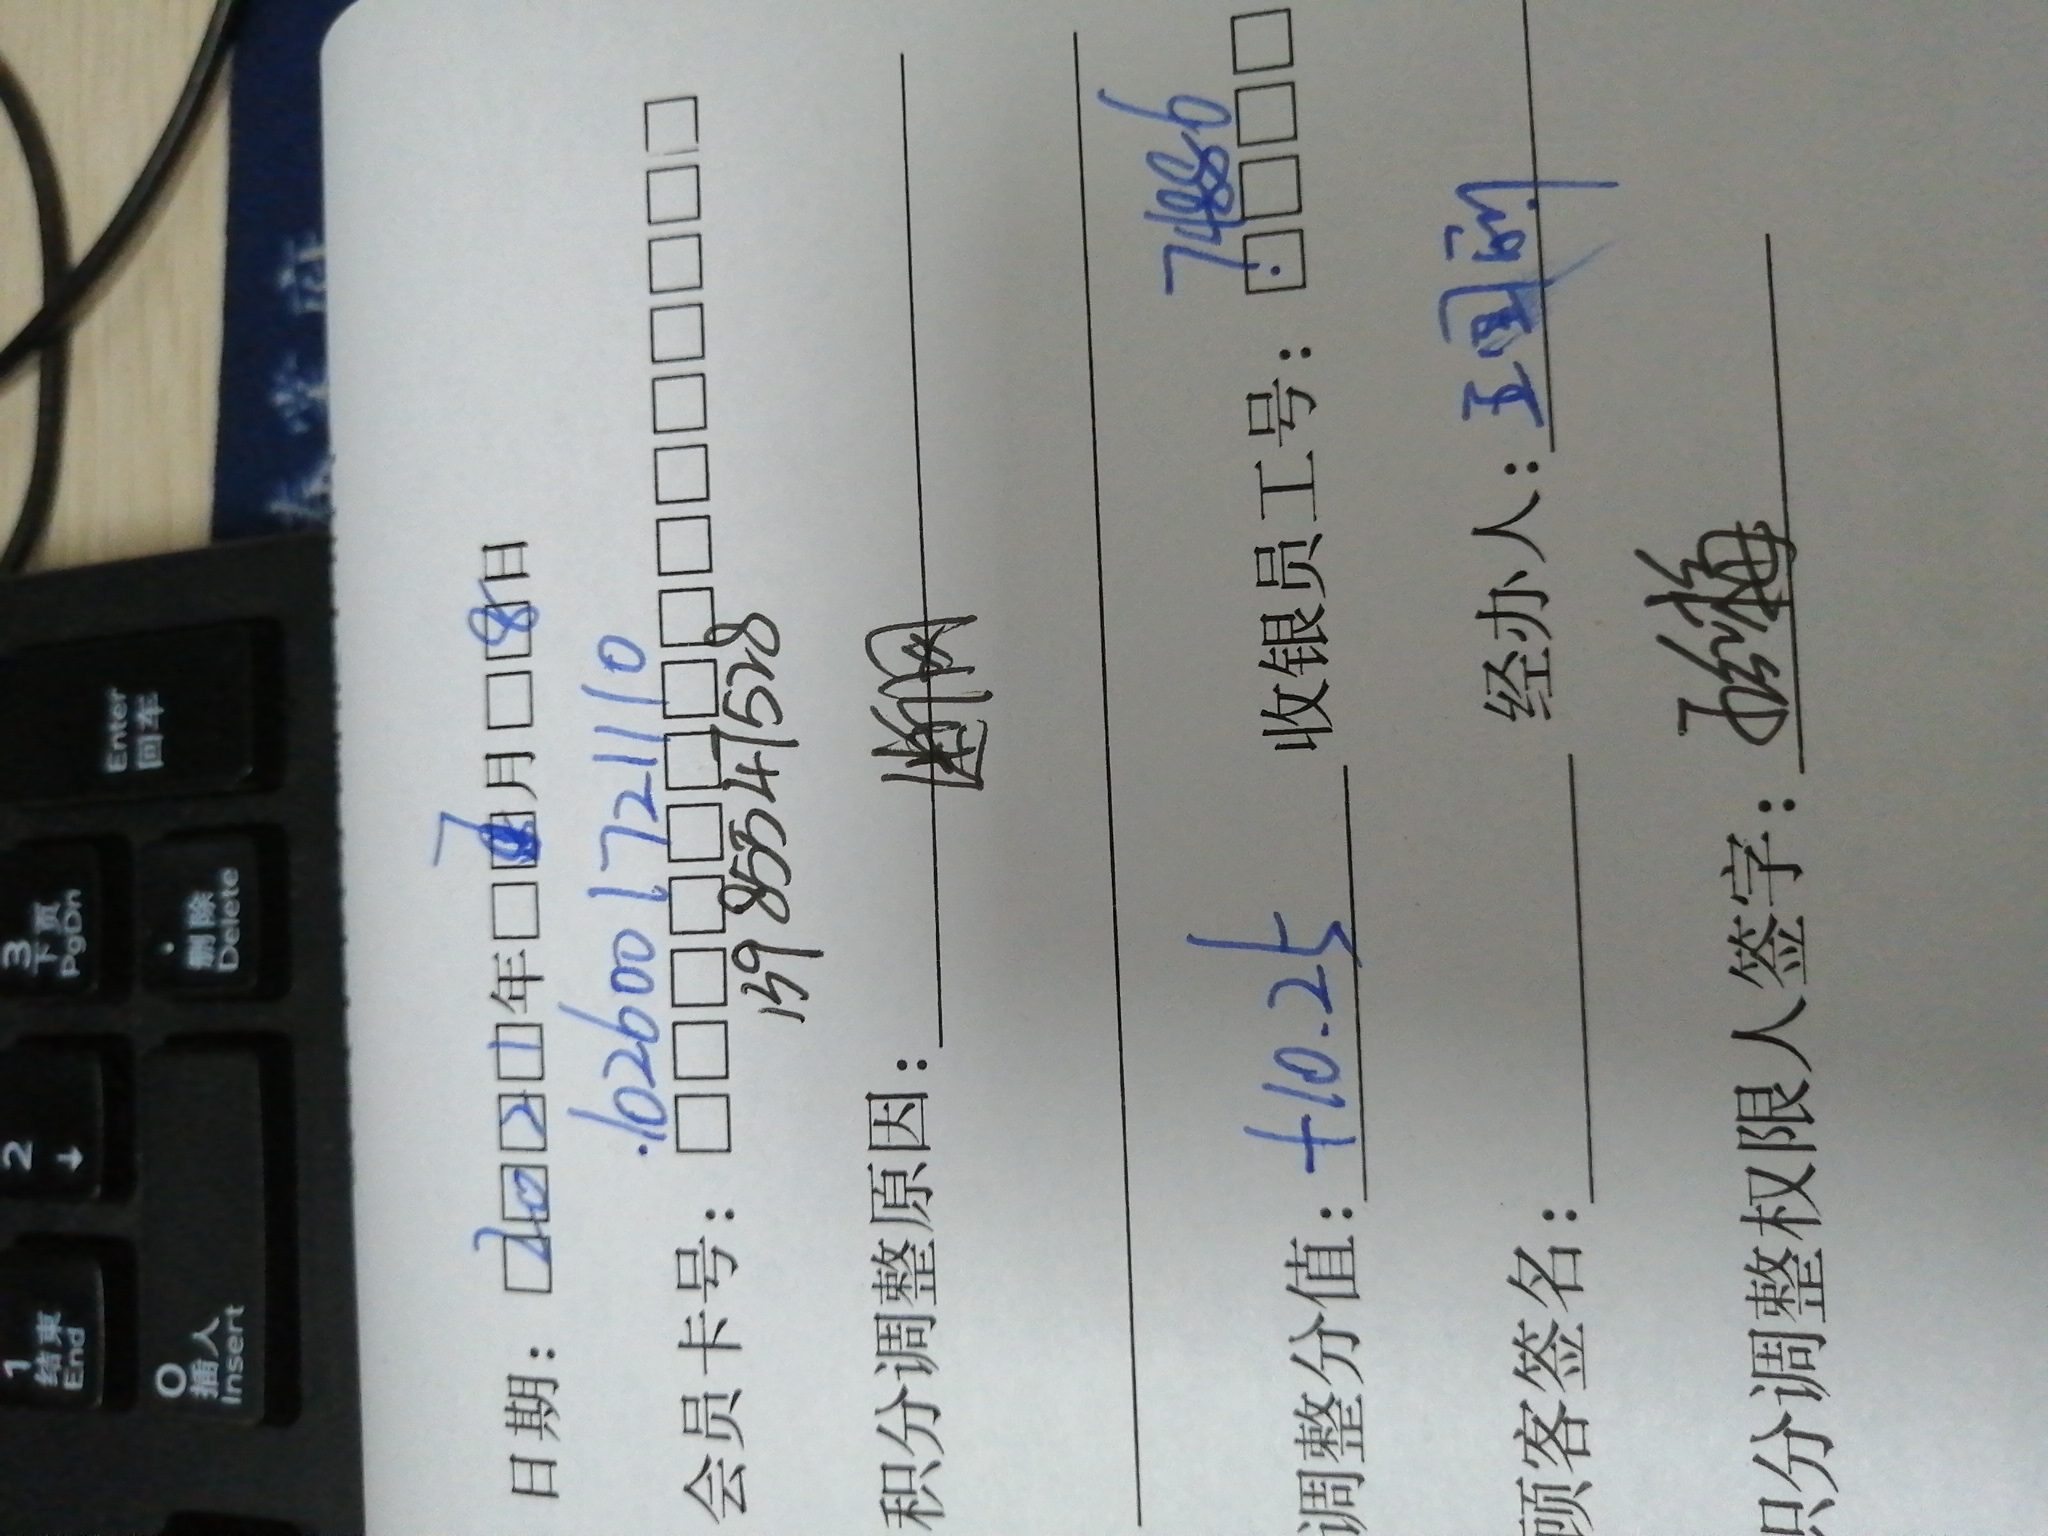 日期：2021年7月8日
1026001721110
会员卡号：
13985547528
积分调整原因：断网
调整分值：+10.25 收银员工号：7486
顾客签名： 经办人：王国
积分调整权限人签字：
3
下页
PgDn
Enter
回车
.
删除
Delete
2
↓
1
结束
End
0
插入
Insert